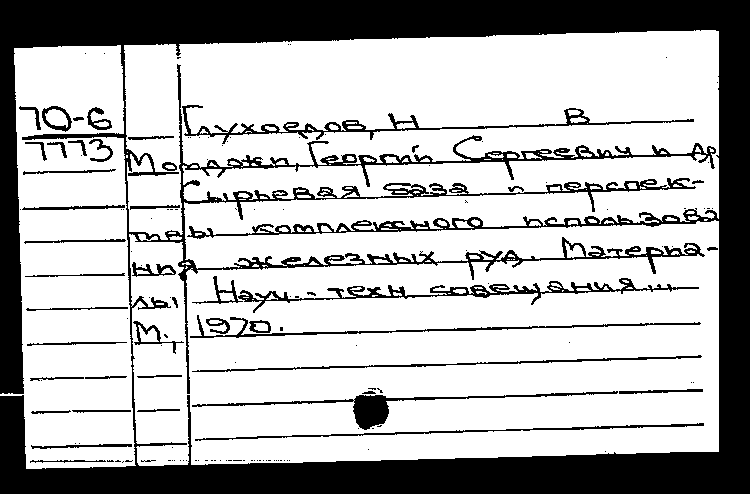 70-6
7773
Глухоедов, Н В
Мотджи, Георгий Сергеевич и др.
Сырьевая база и перспек-
тивы комплексного использова
ния железных руд. Материа-
лы Науч.-техн совещания...
М., 1970.